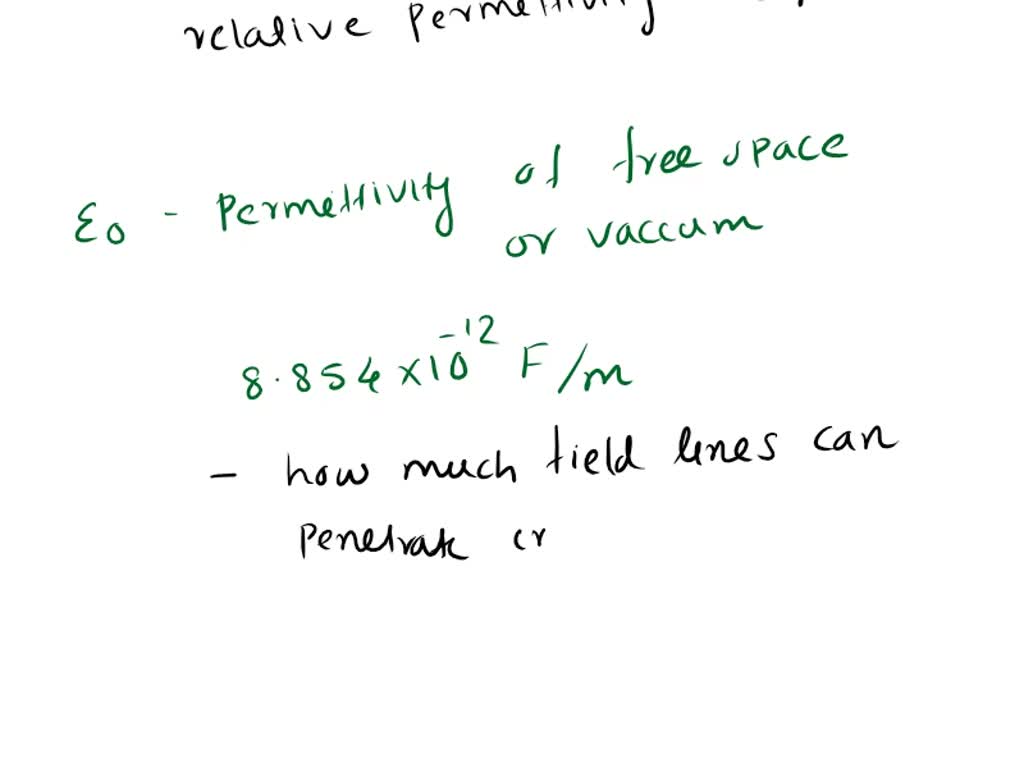 relative Permettivity
ε0 - Permettivity of free space
or vaccum
8.854 × 10⁻¹² F/m
- how much field lines can
Penetrate